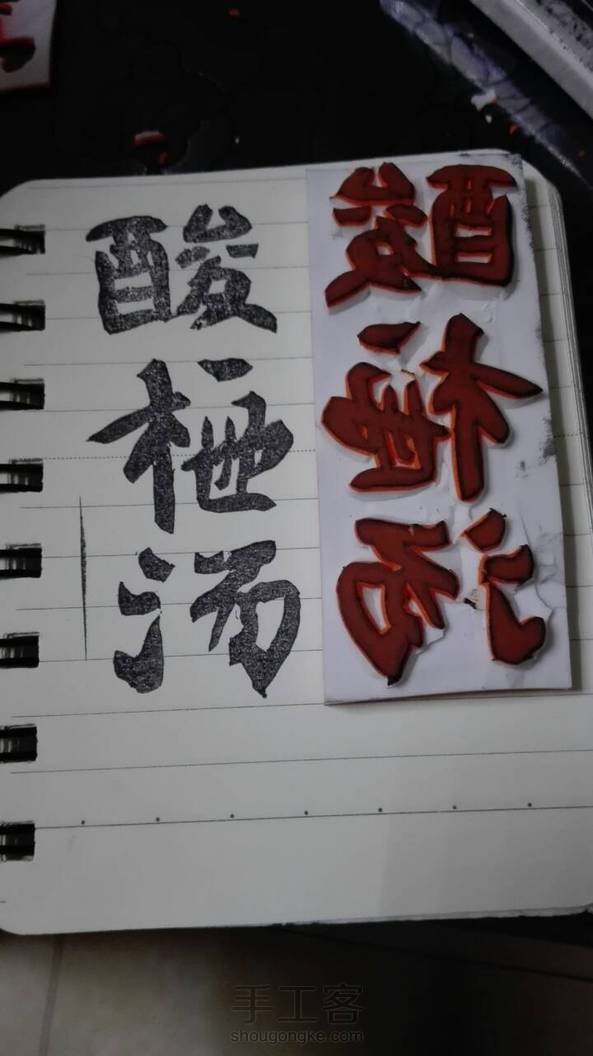 酸梅汤
手工客
shougongke.com